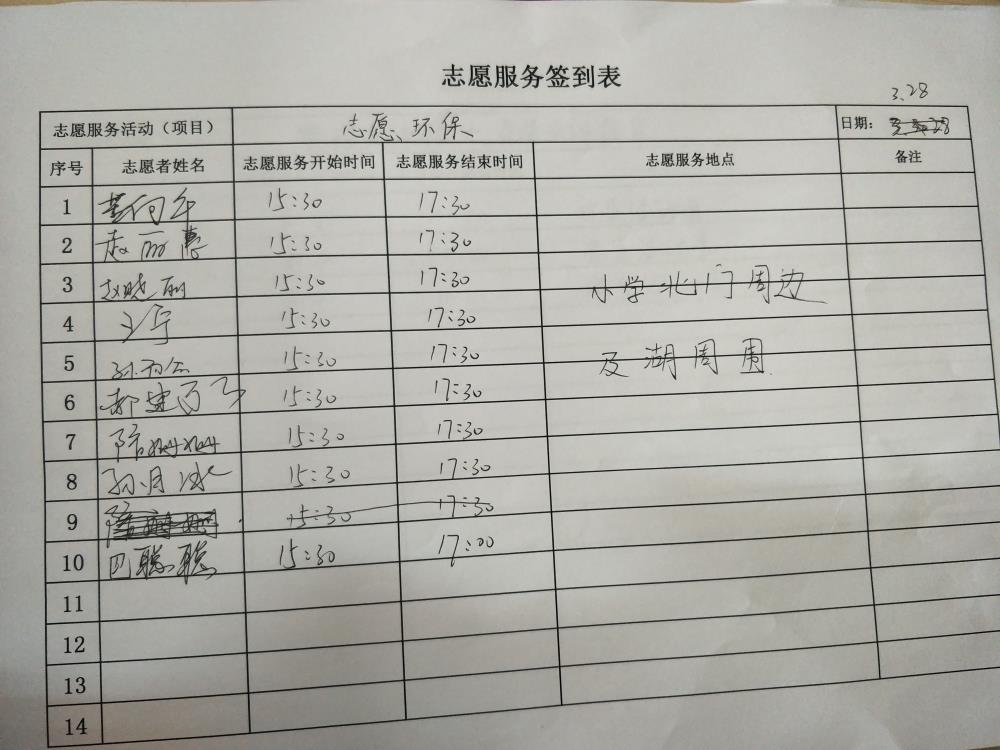 志愿服务签到表
3.28
志愿服务活动（项目） 志愿环保 日期：
序号 志愿者姓名 志愿服务开始时间 志愿服务结束时间 志愿服务地点 备注
1 15:30 17:30
2 赵丽惠 15:30 17:30
3 赵晓丽 15:30 17:30 小学北门周边
4 王宇 15:30 17:30
5 15:30 17:30 及湖周围
6 15:30 17:30
7 陪姗姗 15:30 17:30
8 孙月冰 15:30 17:30
9 15:30 17:30
10 巴聪聪 15:30 17:00
11
12
13
14